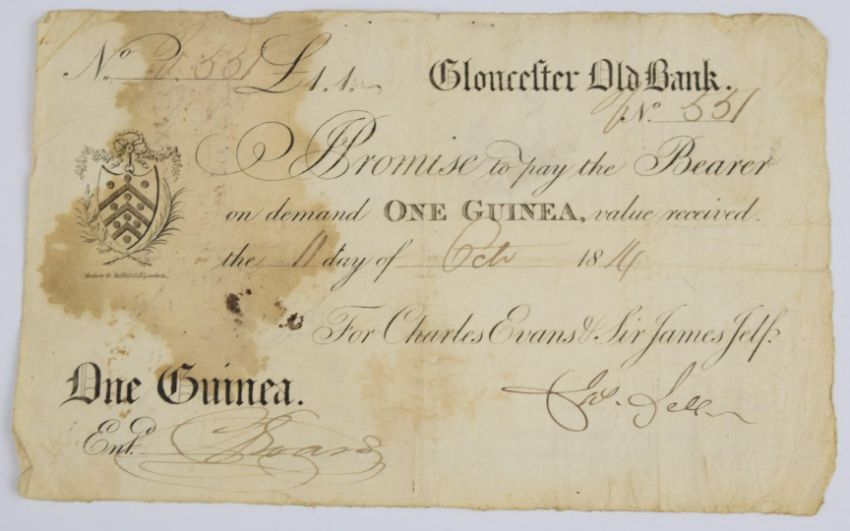 No. 551 £1.1.
Gloucester Old Bank.
No. 551
I Promise to pay the Bearer
on demand ONE GUINEA, value received
the 11 day of Octr 1814
For Charles Evans & Sir James Jelf.
One Guinea.
Entd. C Evans